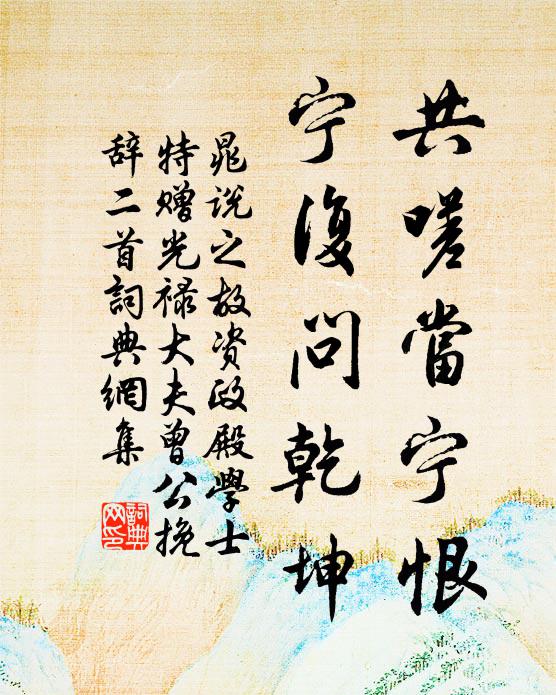 共嗟當宁恨
宁復问乾坤
晁说之故资政殿學士
特赠光禄大夫曾公挽
辞二首詞典網集
詞典
网印